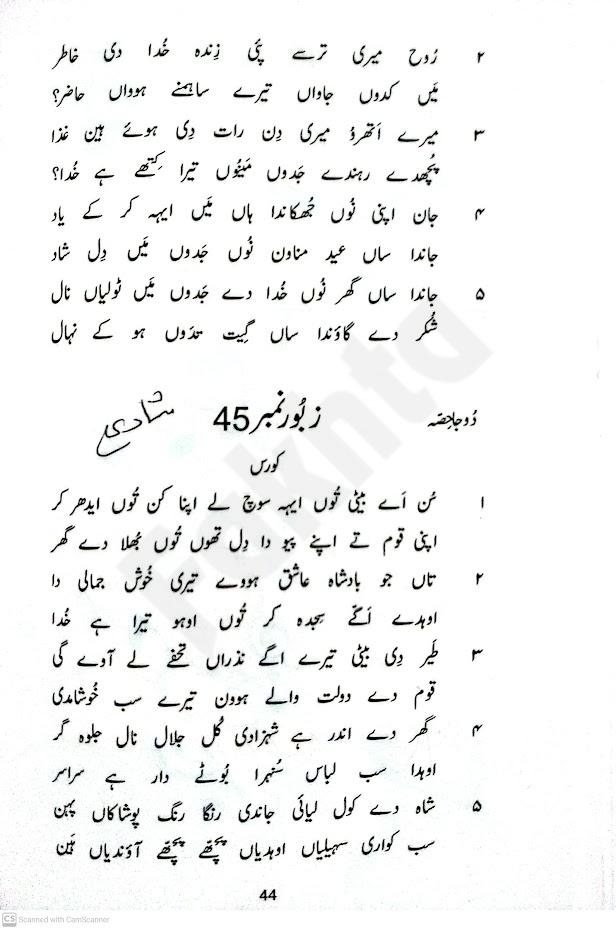 ۲ رُوح میری ترسے پئی زِندہ خُدا دی خاطر
مَیں کدوں جاواں تیرے ساہمنے ہوواں حاضر؟
۳ میرے اَتھرُو میری دِن رات دِی ہوئے ہین غذا
پُچھدے رہندے جَدوں مَینُوں تیرا کِتھے ہے خُدا؟
۴ جان اپنی نُوں جُھکاندا ہاں مَیں ایہہ کر کے یاد
جاندا ساں عید مناون نُوں جَدوں مَیں دِل شاد
۵ جاندا ساں گھر نُوں خُدا دے جَدوں مَیں ٹولیاں نال
شُکر دے گاؤندا ساں گِیت تدَوں ہو کے نہال
دُوجا حِصّہ زبُور نمبر 45 شادی
کورس
۱ سُن اَے بیٹی تُوں ایہہ سوچ لے اپنا کن تُوں ایدھر کر
اپنی قوم تے اپنے پیو دا دِل تھوں تُوں بُھلا دے گھر
۲ تاں جو بادشاہ عاشق ہووے تیری خُوش جمالی دا
اوہدے اَگے سِجدہ کر تُوں اوہو تیرا ہے خُدا
۳ طَیر دِی بیٹی تیرے اگے نذراں تحفے لے آوے گی
قوم دے دولت والے ہوون تیرے سب خُوشامدی
۴ گھر دے اندر ہے شہزادی کُل جلال نال جلوہ گر
اوہدا سب لباس سُنہرا بُوٹے دار ہے سراسر
۵ شاہ دے کول لیائی جاندی رنگا رنگ پوشاکاں پہن
سب کواری سہیلیاں اوہدیاں پچھّے پچھّے آؤندیاں ہَین
44
faknta
CS Scanned with CamScanner